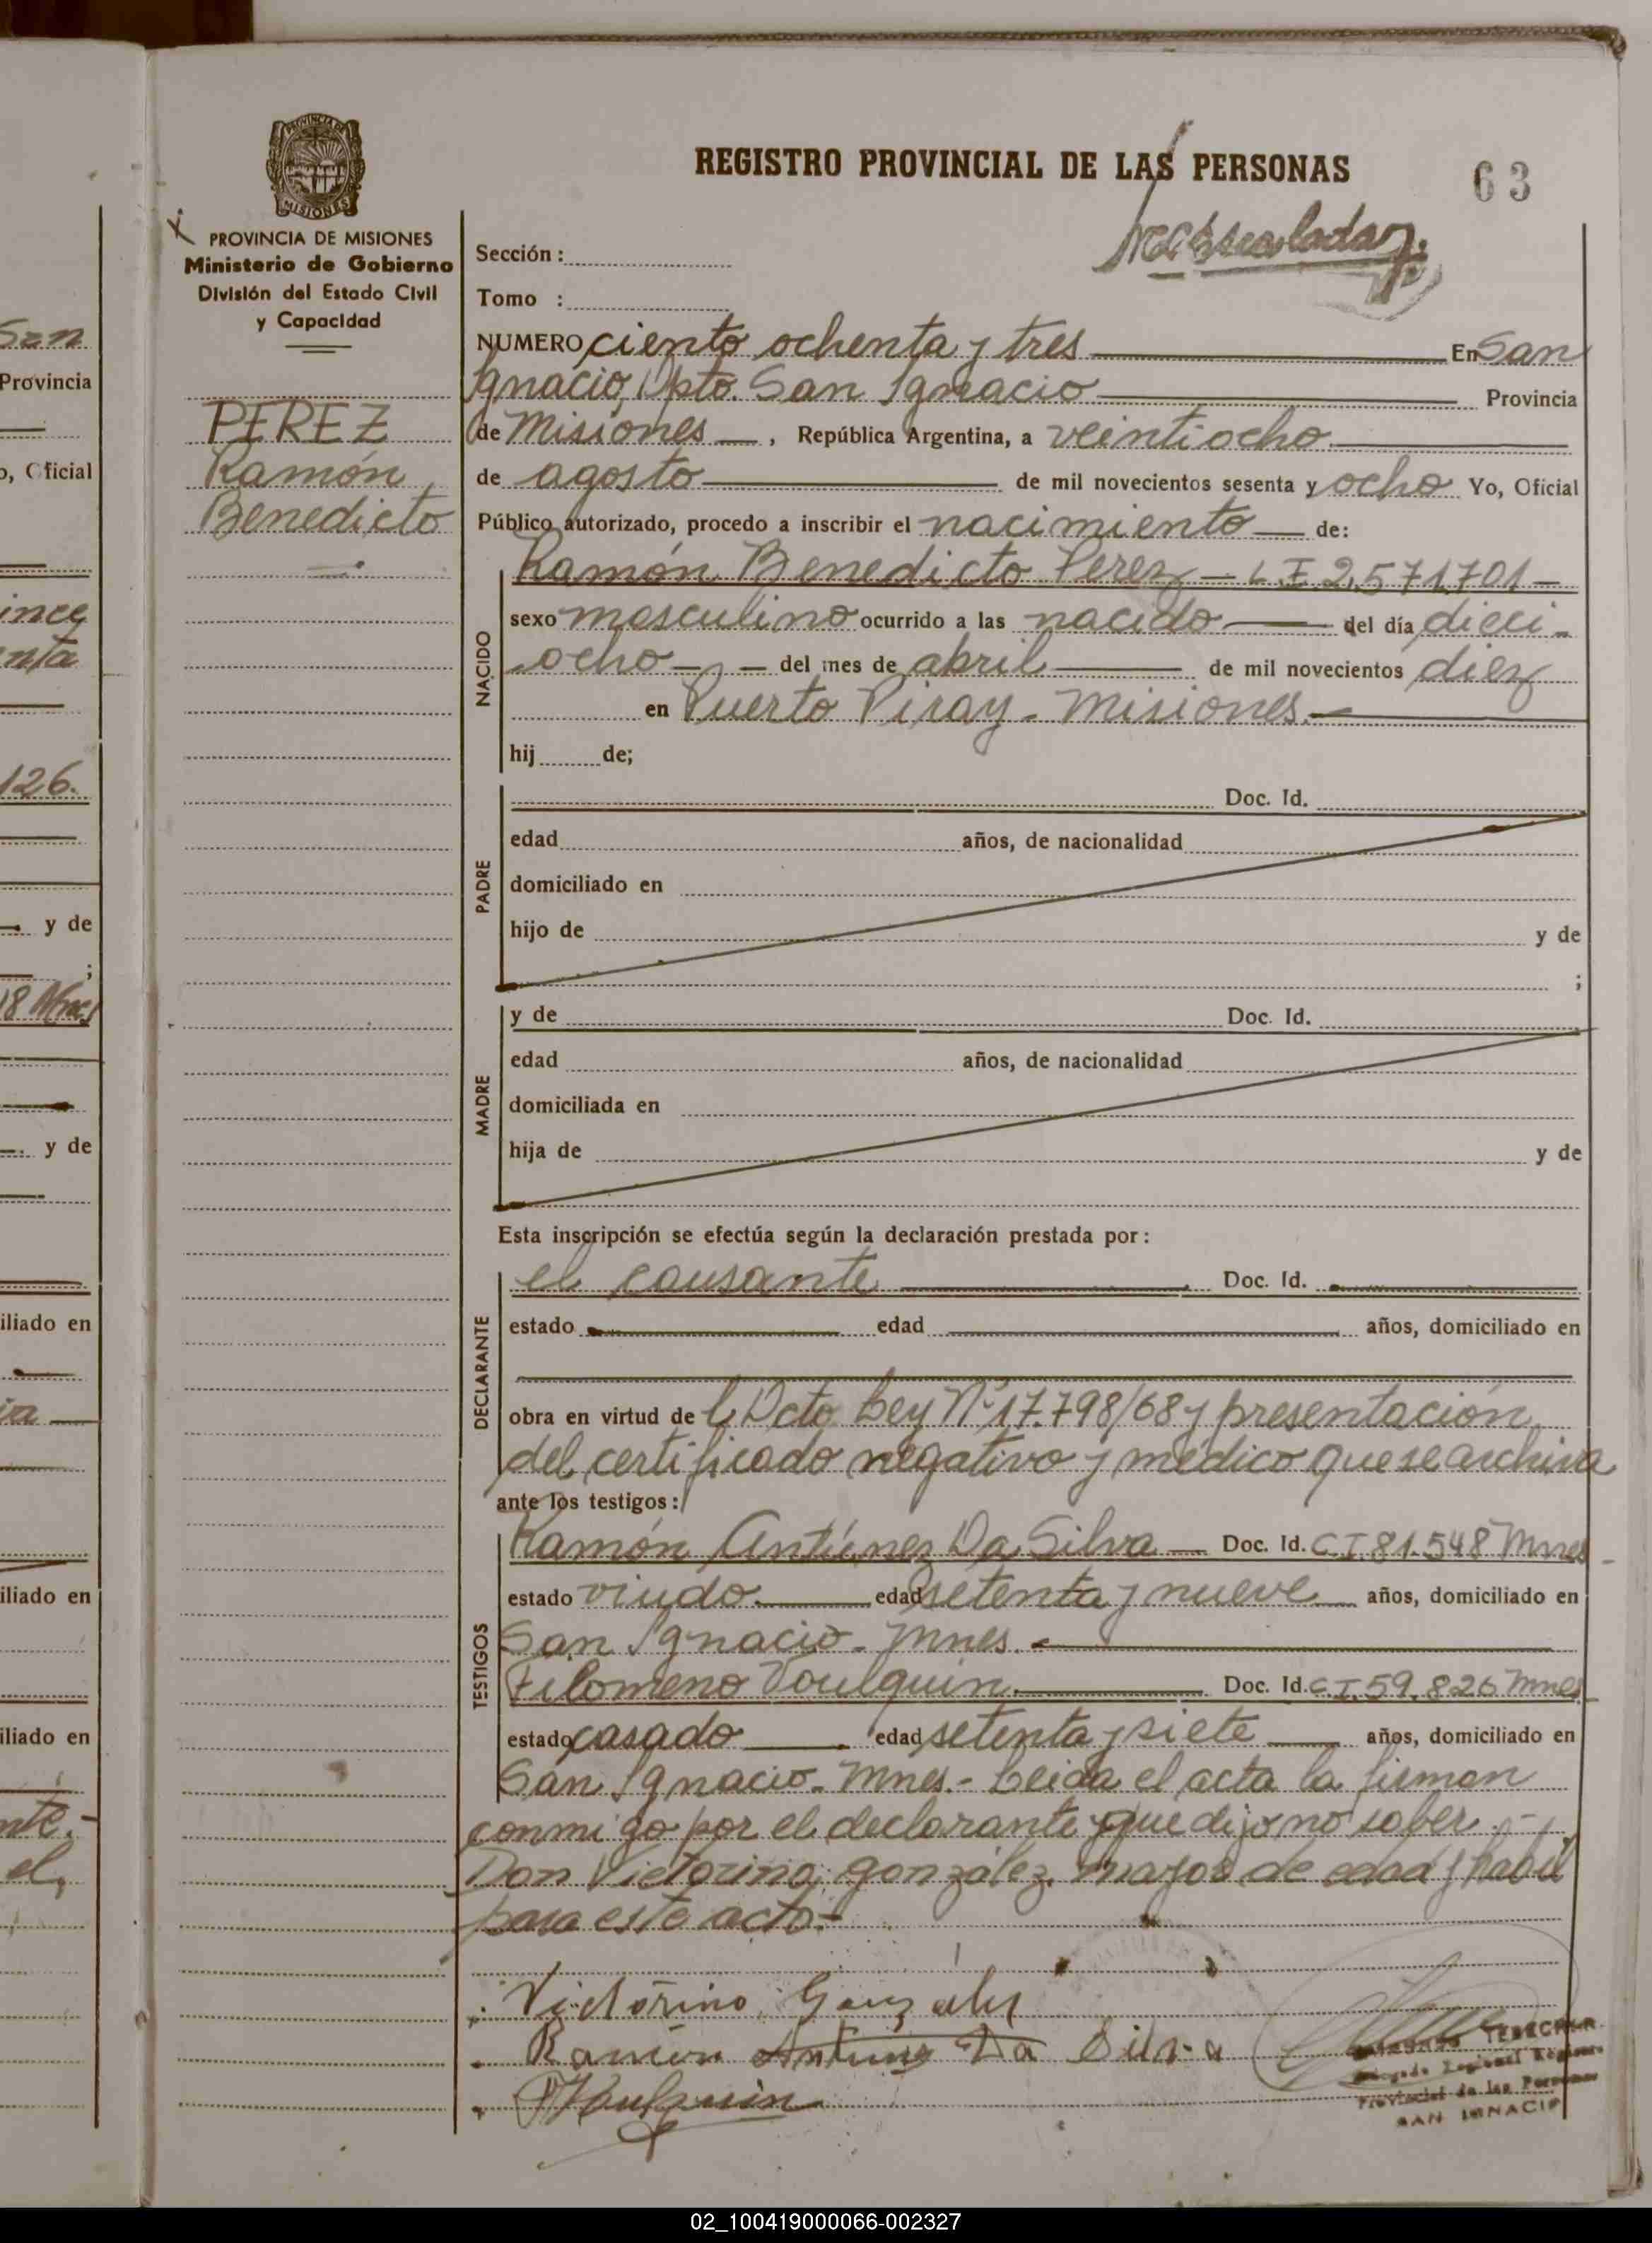 REGISTRO PROVINCIAL DE LAS PERSONAS
63
MISIONES
PROVINCIA DE MISIONES
Ministerio de Gobierno
División del Estado Civil
y Capacidad
PEREZ
Ramón
Benedicto
Sección :
Tomo :
NUMERO ciento ochenta y tres En San
Ignacio, Dpto. San Ignacio Provincia
de Misiones , República Argentina, a veintiocho
de agosto de mil novecientos sesenta y ocho Yo, Oficial
Público autorizado, procedo a inscribir el nacimiento de:
NACIDO
Ramón Benedicto Perez - L.I. 2.571.701 -
sexo masculino ocurrido a las nacido del día dieci-
ocho del mes de abril de mil novecientos diez
en Puerto Piray - Misiones.
hij de;
PADRE
Doc. Id.
edad años, de nacionalidad
domiciliado en
hijo de y de
;
MADRE
y de Doc. Id.
edad años, de nacionalidad
domiciliada en
hija de y de
Esta inscripción se efectúa según la declaración prestada por :
DECLARANTE
el causante Doc. Id.
estado edad años, domiciliado en
obra en virtud de l Dcto Ley Nº 17.798/68 y presentación
del certificado negativo y medico que se archiva
ante los testigos :
TESTIGOS
Ramón Antúnez Da Silva Doc. Id. C.I. 81.548 Mnes
estado viudo. edad setenta y nueve años, domiciliado en
San Ignacio - Mnes.
Filomeno Voulquin. Doc. Id. C.I. 59.826 Mnes
estado casado edad setenta y siete años, domiciliado en
San Ignacio - Mnes. - Leida el acta la firman
conmigo por el declarante que dijo no saber. -
Don Victorino González, mayor de edad y habil
para este acto. -
Victorino Gonzalez
Ramón Antunez Da Silva
Voulquin
Provincial de las Personas
SAN IGNACIO
San
Provincia
o, Oficial
126.
y de
;
18 Mnes
y de
iliado en
iliado en
iliado en
nte. -
el,
02_100419000066-002327